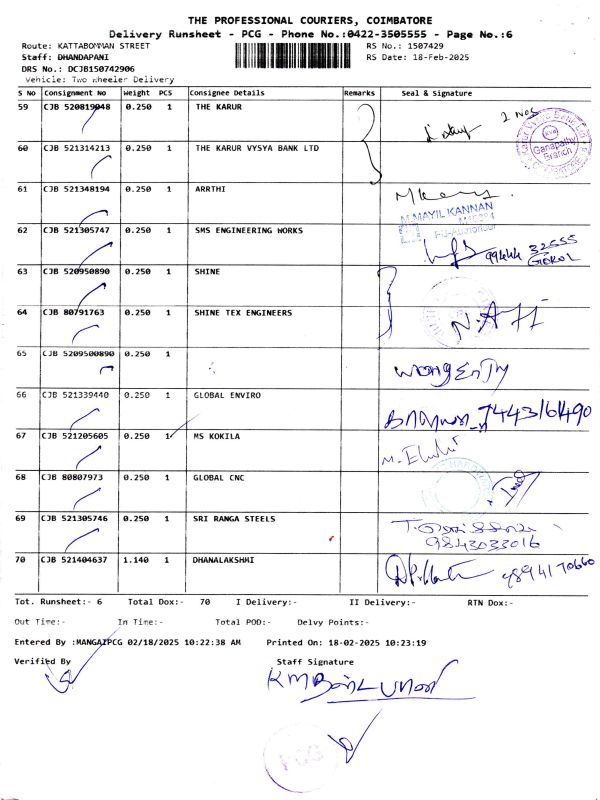 THE PROFESSIONAL COURIERS, COIMBATORE
Delivery Runsheet - PCG - Phone No.:0422-3505555 - Page No.:6
Route: KATTABOMMAN STREET RS No.: 1507429
Staff: DHANDAPANI RS Date: 18-Feb-2025
DRS No.: DCJB150742906
Vehicle: Two Wheeler Delivery
S No Consignment No Weight PCS Consignee Details Remarks Seal & Signature
59 CJB 520819048 0.250 1 THE KARUR 2 Nos
Ganapathy Branch
60 CJB 521314213 0.250 1 THE KARUR VYSYA BANK LTD
61 CJB 521348194 0.250 1 ARRTHI
M.MAYIL KANNAN
62 CJB 521305747 0.250 1 SMS ENGINEERING WORKS
99444 32555
63 CJB 520950890 0.250 1 SHINE
64 CJB 80791763 0.250 1 SHINE TEX ENGINEERS
65 CJB 5209500890 0.250 1
66 CJB 521339440 0.250 1 GLOBAL ENVIRO
7443161490
67 CJB 521205605 0.250 1 MS KOKILA
68 CJB 80807973 0.250 1 GLOBAL CNC
69 CJB 521305746 0.250 1 SRI RANGA STEELS
9843033016
70 CJB 521404637 1.140 1 DHANALAKSHMI
9894170660
Tot. Runsheet:- 6 Total Dox:- 70 I Delivery:- II Delivery:- RTN Dox:-
Out Time:- In Time:- Total POD:- Delvy Points:-
Entered By :MANGAIPCG 02/18/2025 10:22:38 AM Printed On: 18-02-2025 10:23:19
Verified By Staff Signature
PCG